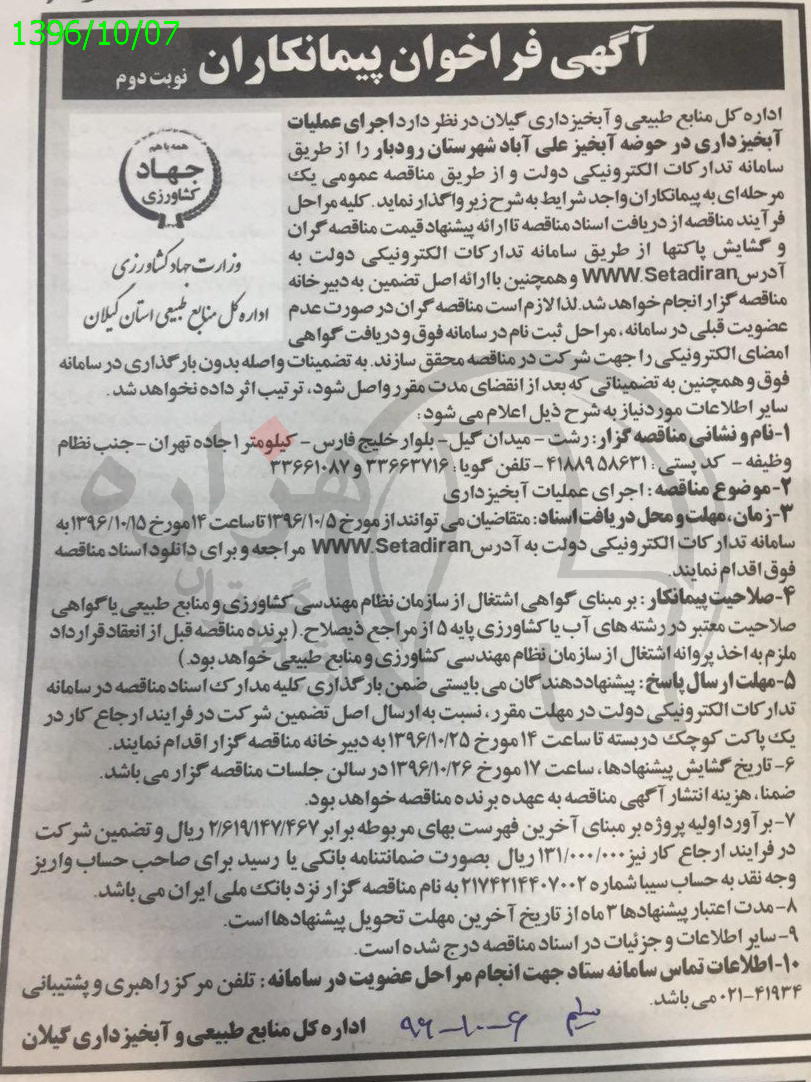 1396/10/07
آگهی فراخوان پیمانکاران نوبت دوم
اداره کل منابع طبیعی و آبخیزداری گیلان در نظر دارد اجرای عملیات
آبخیزداری در حوضه آبخیز علی آباد شهرستان رودبار را از طریق
سامانه تدارکات الکترونیکی دولت و از طریق مناقصه عمومی یک
مرحله‌ای به پیمانکاران واجد شرایط به شرح زیر واگذار نماید. کلیه مراحل
فرآیند مناقصه از دریافت اسناد مناقصه تا ارائه پیشنهاد قیمت مناقصه گران
و گشایش پاکتها از طریق سامانه تدارکات الکترونیکی دولت به
آدرس WWW.Setadiran و همچنین با ارائه اصل تضمین به دبیرخانه
مناقصه گزار انجام خواهد شد. لذا لازم است مناقصه گران در صورت عدم
عضویت قبلی در سامانه، مراحل ثبت نام در سامانه فوق و دریافت گواهی
امضای الکترونیکی را جهت شرکت در مناقصه محقق سازند. به تضمینات واصله بدون بارگذاری در سامانه
فوق و همچنین به تضمیناتی که بعد از انقضای مدت مقرر واصل شود، ترتیب اثر داده نخواهد شد.
سایر اطلاعات مورد نیاز به شرح ذیل اعلام می شود:
همه با هم
جهاد
کشاورزی
وزارت جهاد کشاورزی
اداره کل منابع طبیعی استان گیلان
۱-نام و نشانی مناقصه گزار: رشت - میدان گیل- بلوار خلیج فارس- کیلومتر ۱ جاده تهران -جنب نظام
وظیفه - کد پستی: ۴۱۸۸۹۵۸۶۳۱- تلفن گویا: ۳۳۶۶۳۷۱۶ و ۳۳۶۶۱۰۸۷
۲-موضوع مناقصه: اجرای عملیات آبخیزداری
۳-زمان، مهلت و محل دریافت اسناد: متقاضیان می توانند از مورخ ۱۳۹۶/۱۰/۵ تا ساعت ۱۴ مورخ ۱۳۹۶/۱۰/۱۵ به
سامانه تدارکات الکترونیکی دولت به آدرس WWW.Setadiran مراجعه و برای دانلود اسناد مناقصه
فوق اقدام نمایند.
۴-صلاحیت پیمانکار: بر مبنای گواهی اشتغال از سازمان نظام مهندسی کشاورزی و منابع طبیعی یا گواهی
صلاحیت معتبر در رشته های آب یا کشاورزی پایه ۵ از مراجع ذیصلاح. (برنده مناقصه قبل از انعقاد قرارداد
ملزم به اخذ پروانه اشتغال از سازمان نظام مهندسی کشاورزی و منابع طبیعی خواهد بود.)
۵-مهلت ارسال پاسخ: پیشنهاددهندگان می بایستی ضمن بارگذاری کلیه مدارک اسناد مناقصه در سامانه
تدارکات الکترونیکی دولت در مهلت مقرر، نسبت به ارسال اصل تضمین شرکت در فرایند ارجاع کار در
یک پاکت کوچک دربسته تا ساعت ۱۴ مورخ ۱۳۹۶/۱۰/۲۵ به دبیرخانه مناقصه گزار اقدام نمایند.
۶- تاریخ گشایش پیشنهادها، ساعت ۱۷ مورخ ۱۳۹۶/۱۰/۲۶ در سالن جلسات مناقصه گزار می باشد.
ضمنا، هزینه انتشار آگهی مناقصه به عهده برنده مناقصه خواهد بود.
۷-برآورد اولیه پروژه بر مبنای آخرین فهرست بهای مربوطه برابر ۲/۶۱۹/۱۴۷/۴۶۷ ریال و تضمین شرکت
در فرایند ارجاع کار نیز ۱۳۱/۰۰۰/۰۰۰ ریال بصورت ضمانتنامه بانکی یا رسید برای صاحب حساب واریز
وجه نقد به حساب سیبا شماره ۲۱۷۴۲۱۴۴۰۷۰۰۲ به نام مناقصه گزار نزد بانک ملی ایران می باشد.
۸-مدت اعتبار پیشنهادها ۳ ماه از تاریخ آخرین مهلت تحویل پیشنهادها است.
۹-سایر اطلاعات و جزئیات در اسناد مناقصه درج شده است.
۱۰-اطلاعات تماس سامانه ستاد جهت انجام مراحل عضویت در سامانه: تلفن مرکز راهبری و پشتیبانی
۰۲۱-۴۱۹۳۴ می باشد.
۹۶-۱۰-۶
اداره کل منابع طبیعی و آبخیزداری گیلان
هزاره